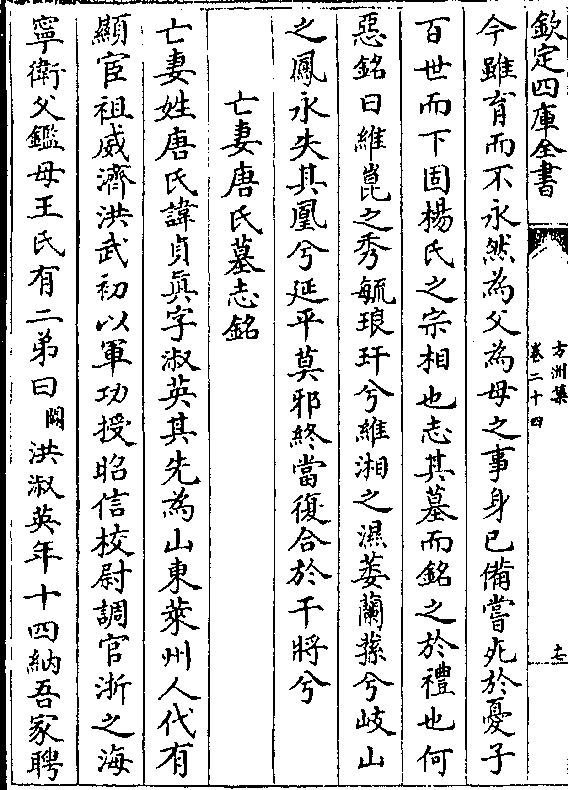 欽定四庫全書
方洲集
卷二十四
十七
今雖育而不永然為父為母之事身已備嘗死於憂子
百世而下固楊氏之宗相也志其墓而銘之於禮也何
惡銘曰維崑之秀毓琅玕兮維湘之濕萎蘭蓀兮岐山
之鳳永失其凰兮延平莫邪終當復合於干將兮
亡妻唐氏墓志銘
亡妻姓唐氏諱貞真字淑英其先為山東萊州人代有
顯宦祖威濟洪武初以軍功授昭信校尉調官浙之海
寧衛父鑑母王氏有二弟曰闕洪淑英年十四納吾家聘